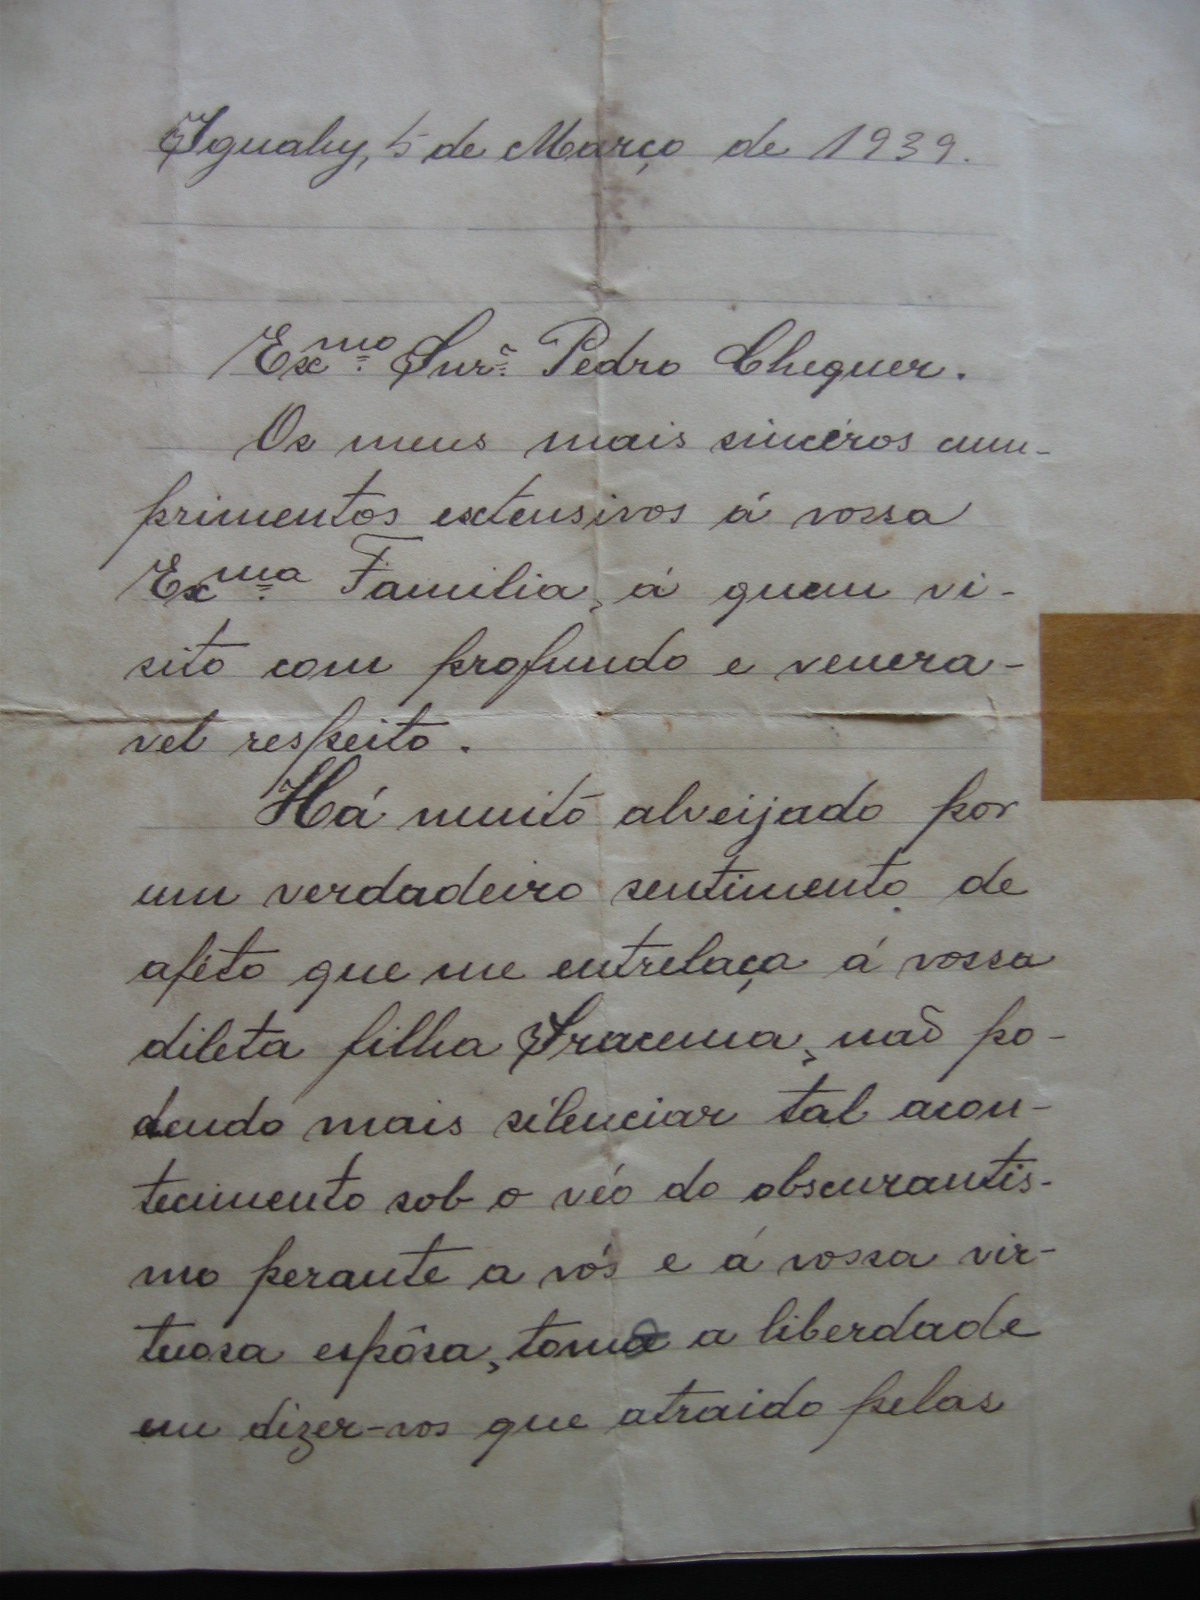 Iguahy, 5 de Março de 1939.
Exmo. Snr. Pedro Chequer.
Os meus mais sincéros cum-
primentos extensivos á vossa
Exma. Familia, á quem vi-
sito com profundo e venera-
vel respeito.
Há muito alveijado por
um verdadeiro sentimento de
aféto que me entrelaça á vossa
dileta filha Iracema, não po-
dendo mais silenciar tal acon-
tecimento sob o véo do obscurantis-
mo perante a vós e á vossa vir-
tuosa espôsa, tomo a liberdade
em dizer-vos que atraido pelas